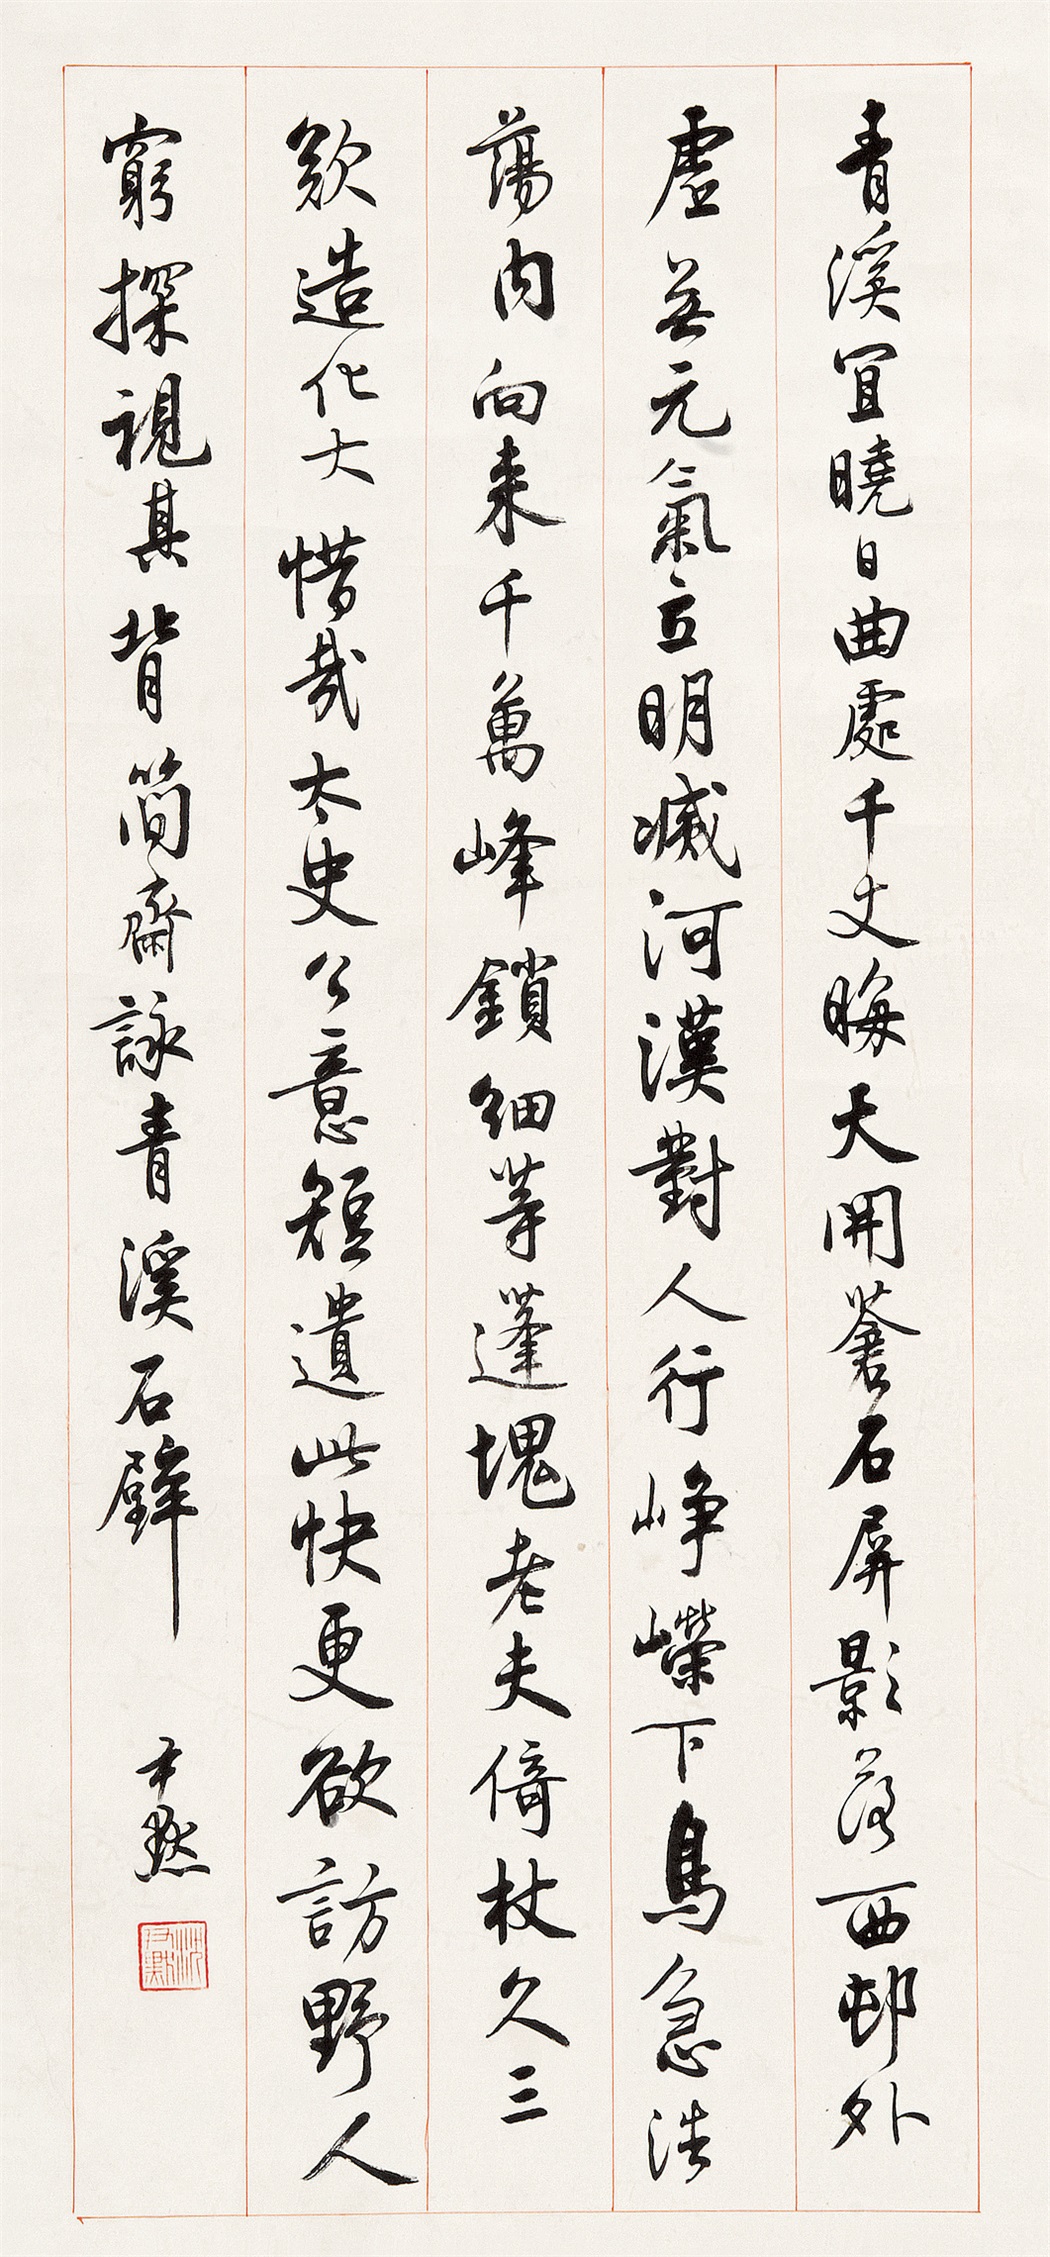 青溪宜曉日曲處千丈晦天開蒼石屏影落西邨外
虛無元氣立明滅河漢對人行崢嶸下鳥急浩
蕩內向来千萬峰鎖細等蓬塊老夫倚杖久三
歎造化大惜哉太史公意短遺此快更欲訪野人
窮探視其背簡齋詠青溪石壁
尹默
沈尹默